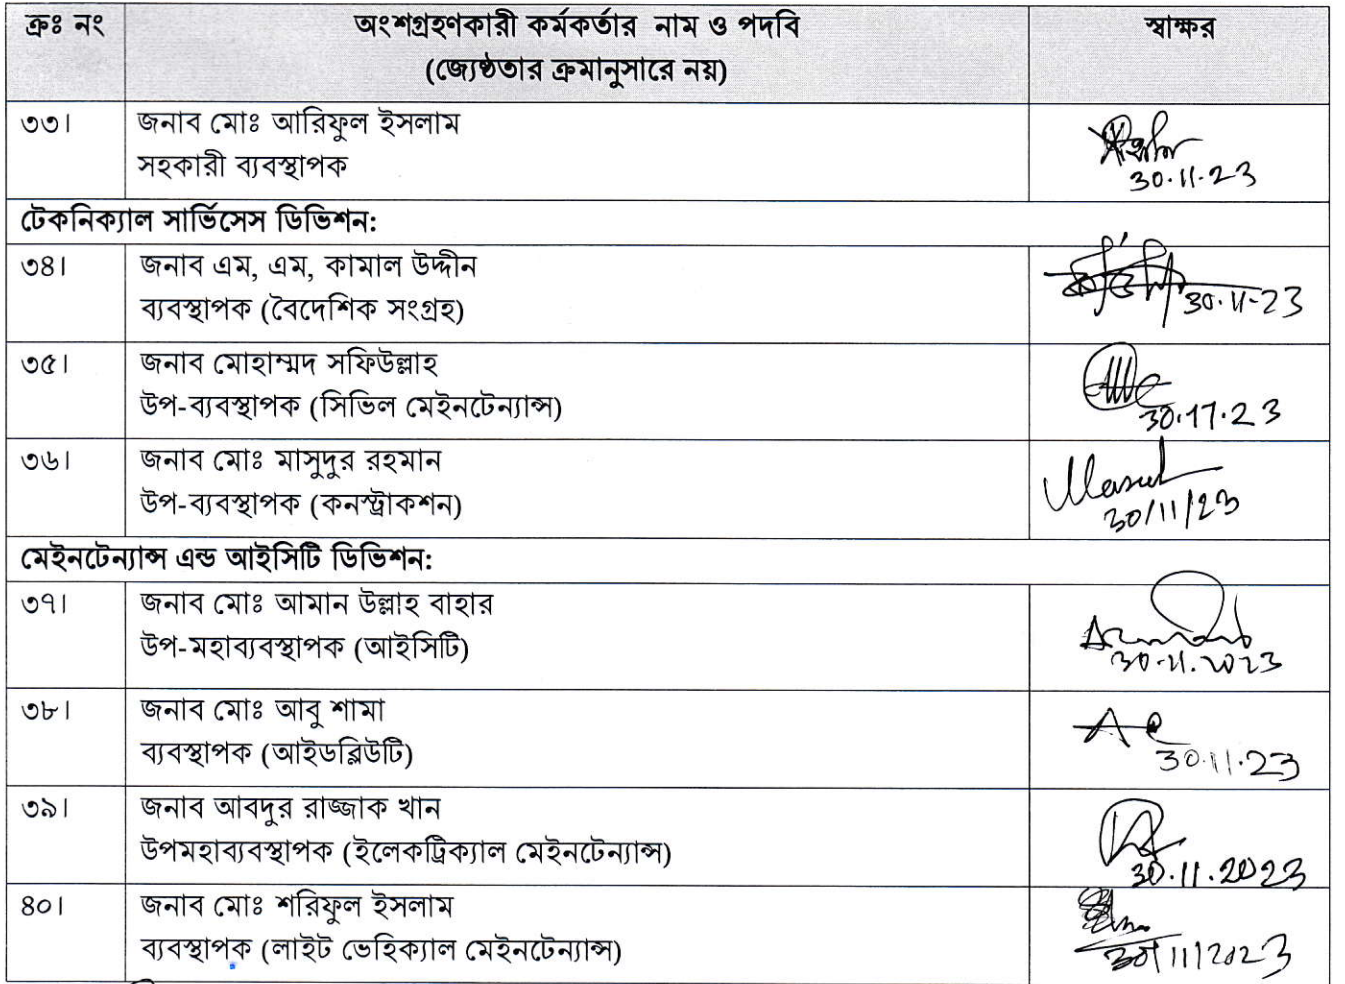 ক্রঃ নং অংশগ্রহণকারী কর্মকর্তার নাম ও পদবি স্বাক্ষর
(জ্যেষ্ঠতার ক্রমানুসারে নয়)
৩৩। জনাব মোঃ আরিফুল ইসলাম
সহকারী ব্যবস্থাপক
30.11.23
টেকনিক্যাল সার্ভিসেস ডিভিশন:
৩৪। জনাব এম, এম, কামাল উদ্দীন
ব্যবস্থাপক (বৈদেশিক সংগ্রহ) 30.11-23
৩৫। জনাব মোহাম্মদ সফিউল্লাহ
উপ-ব্যবস্থাপক (সিভিল মেইনটেন্যান্স) 30.11.23
৩৬। জনাব মোঃ মাসুদুর রহমান Masud
উপ-ব্যবস্থাপক (কনস্ট্রাকশন) 30/11/23
মেইনটেন্যান্স এন্ড আইসিটি ডিভিশন:
৩৭। জনাব মোঃ আমান উল্লাহ বাহার
উপ-মহাব্যবস্থাপক (আইসিটি) 30-11.2023
৩৮। জনাব মোঃ আবু শামা
ব্যবস্থাপক (আইডব্লিউটি) 30.11.23
৩৯। জনাব আবদুর রাজ্জাক খান
উপমহাব্যবস্থাপক (ইলেকট্রিক্যাল মেইনটেন্যান্স) 30.11.2023
৪০। জনাব মোঃ শরিফুল ইসলাম
ব্যবস্থাপক (লাইট ভেহিক্যাল মেইনটেন্যান্স) 30/11/2023